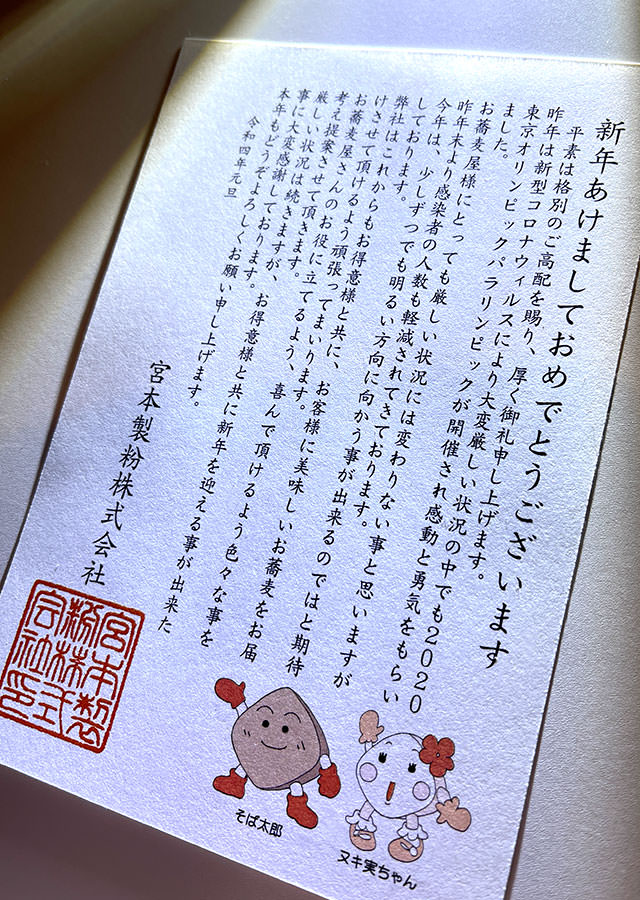 新年あけましておめでとうございます
平素は格別のご高配を賜り、厚く御礼申し上げます。
昨年は新型コロナウィルスにより大変厳しい状況の中でも2020
東京オリンピックパラリンピックが開催され感動と勇気をもらい
ました。
お蕎麦屋様にとっても厳しい状況には変わりない事と思いますが
昨年末より感染者の人数も軽減されてきております。
今年は、少しずつでも明るい方向に向かう事が出来るのではと期待
しております。
弊社はこれからもお得意様と共に、お客様に美味しいお蕎麦をお届
けさせて頂けるよう頑張ってまいります。
お蕎麦屋さんのお役に立てるよう、喜んで頂けるよう色々な事を
考え提案させて頂きます。
厳しい状況は続きますが、お得意様と共に新年を迎える事が出来た
事に大変感謝しております。
本年もどうぞよろしくお願い申し上げます。
令和四年元旦
宮本製粉株式会社
宮本製
粉株式
会社印
そば太郎
ヌキ実ちゃん